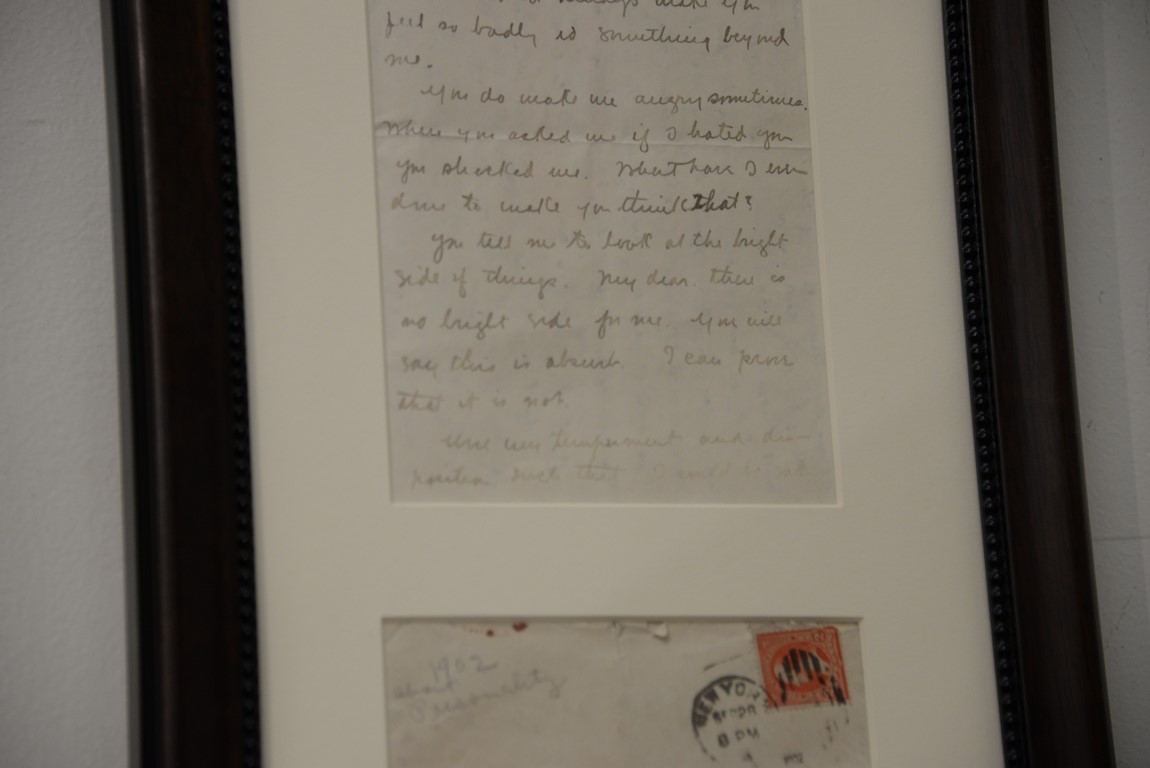 always make you
feel so badly is something beyond
me.
You do make me angry sometimes.
When you asked me if I hated you
you shocked me. What have I ever
done to make you think that?
You tell me to look at the bright
side of things. My dear there is
no bright side for me. You will
say this is absurd. I can prove
that it is not.
temperment and dis-
position such that I
1902
about
Personality
NEW YORK
8 PM